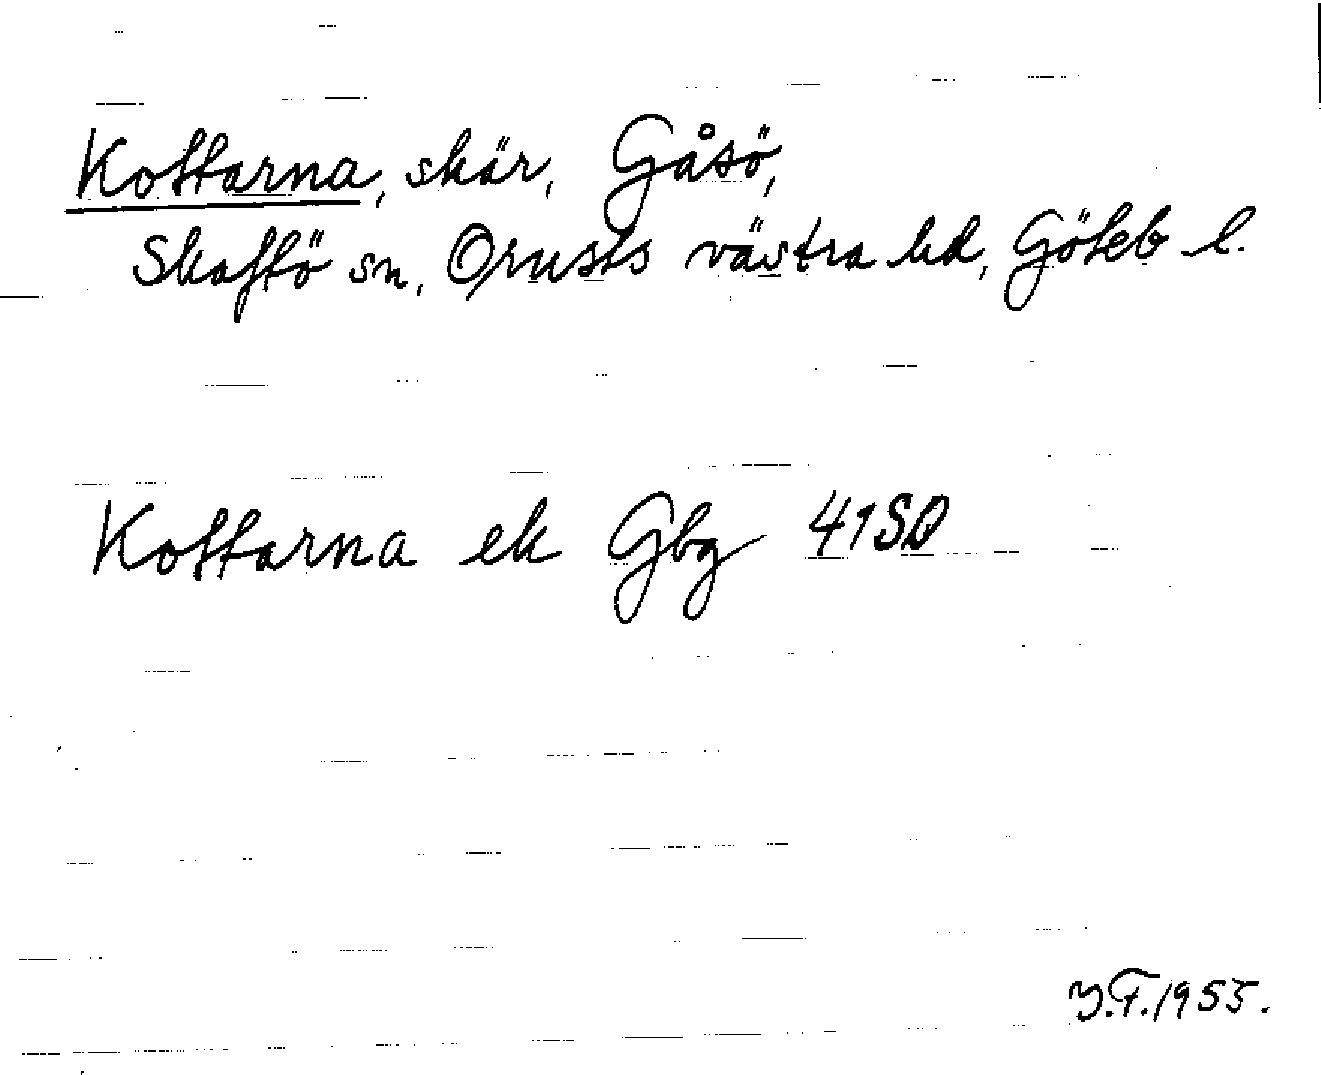 Kottarna, skär, Gåsö,
Skaftö sn, Orusts västra hd, Göteb l.
Kottarna ek Gbg 41SO
Y.F. 1955.